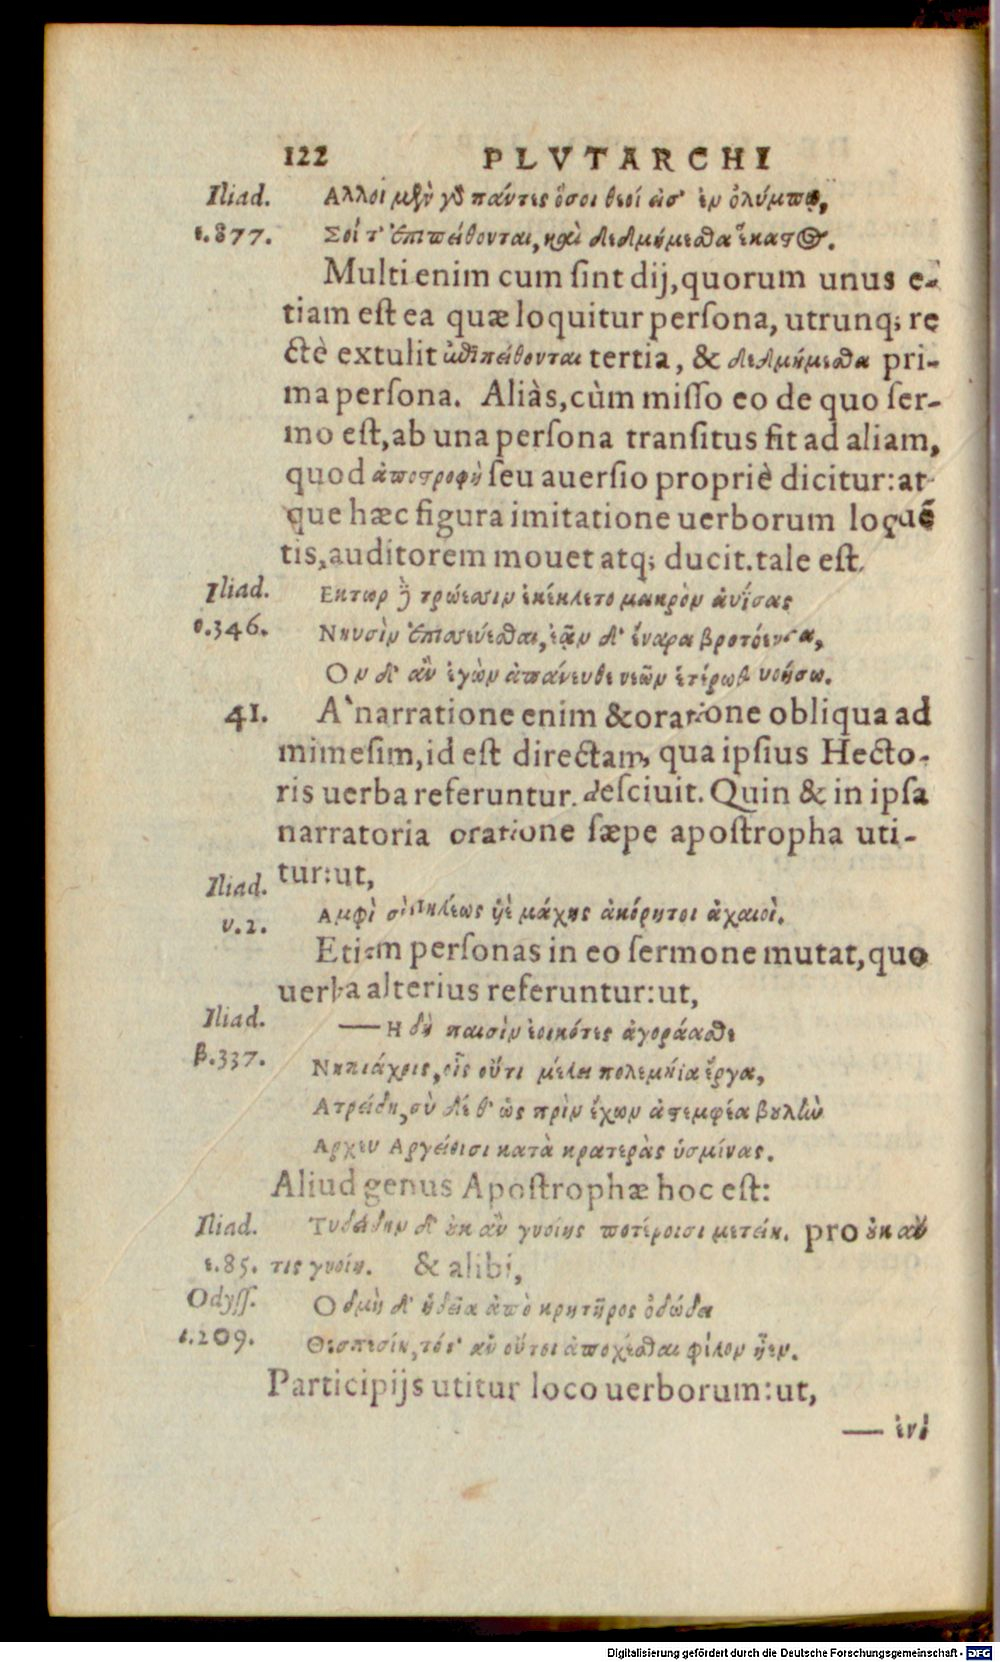 122 PLVTARCHI
Iliad. Αλλοι μὲν γὸ πάντες ὅσοι θεοί εἰσ' ἐν ὀλύμπῳ,
ε.877. Σοί τ' ἐπιπείθονται, καὶ δεδμήμεσθα ἕκαστος.
Multi enim cum sint dij, quorum unus e-
tiam est ea quæ loquitur persona, utrunq; re
ctè extulit ἐπιπείθονται tertia, & δεδμήμεσθα pri-
ma persona. Aliàs, cùm misso eo de quo ser-
mo est, ab una persona transitus fit ad aliam,
quod ἀποστροφὴ seu auersio propriè dicitur: at
que hæc figura imitatione uerborum loquẽ
tis, auditorem mouet atq; ducit. tale est.
Iliad. Εκτωρ δὲ τρώεσσιν ἐκέκλετο μακρὸν ἀΰσας
ο.346. Νηυσὶν ἐπισσεύεσθαι, ἐᾶν δ' ἔναρα βροτόεντα,
Ον δ' ἂν ἐγὼν ἀπάνευθε νεῶν ἑτέρωθι νοήσω.
41. A' narratione enim & oratione obliqua ad
mimesim, id est directam, qua ipsius Hecto-
ris uerba referuntur. desciuit. Quin & in ipsa
narratoria oratione sæpe apostropha uti-
tur: ut,
Iliad.
υ.2. Αμφὶ σὲ πηλέως ὑὲ μάχης ἀκόρητοι ἀχαιοὶ.
Etiam personas in eo sermone mutat, quo
uerba alterius referuntur: ut,
Iliad. — Η δὴ παισὶν ἐοικότες ἀγοράασθε
β.337. Νηπιάχοις, οἷς οὔτι μέλει πολεμήϊα ἔργα,
Ατρείδη, σὺ δέ θ' ὡς πρὶν ἔχων ἀστεμφέα βουλὴν
Αρχευ Αργείοισι κατὰ κρατερὰς ὑσμίνας.
Aliud genus Apostrophæ hoc est:
Iliad. Τυδείδην δ' οὐκ ἂν γνοίης ποτέροισι μετείη. pro οὐκ ἂν
ε.85. τις γνοίη. & alibi,
Odyss. Οδμὴ δ' ἡδεῖα ἀπὸ κρητῆρος ὀδώδει
ι.209. Θεσπεσίη, τότ' ἂν οὔτοι ἀποχέσθαι φίλον ἦεν.
Participijs utitur loco uerborum: ut,
— ἐνὶ
Digitalisierung gefördert durch die Deutsche Forschungsgemeinschaft - DFG